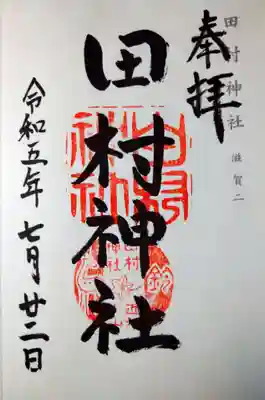 奉拝
田村神社 滋賀二
田村神社
令和五年 七月 廿二日